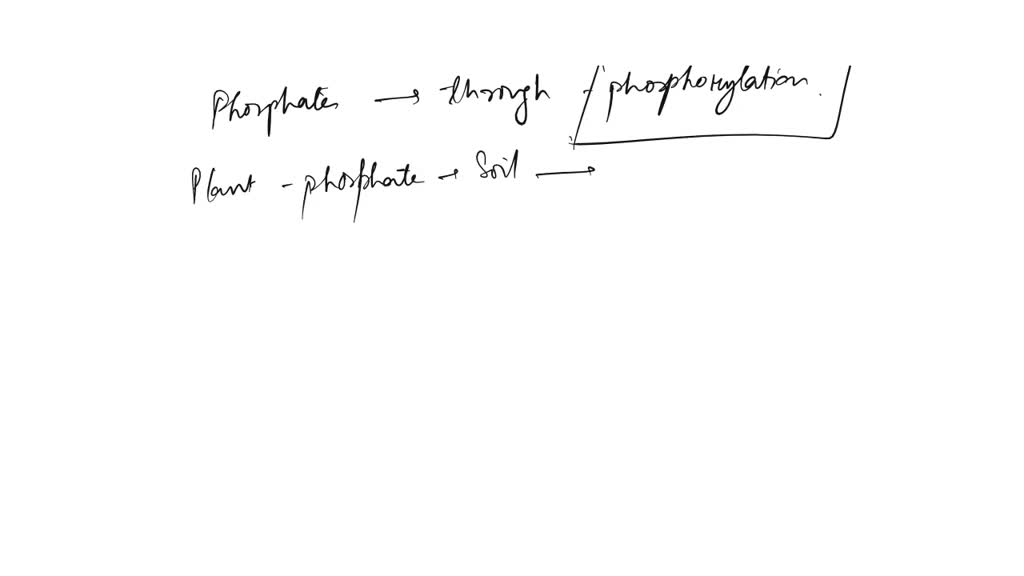 Phosphates → through phosphorylation.
Plant - phosphate → Soil →